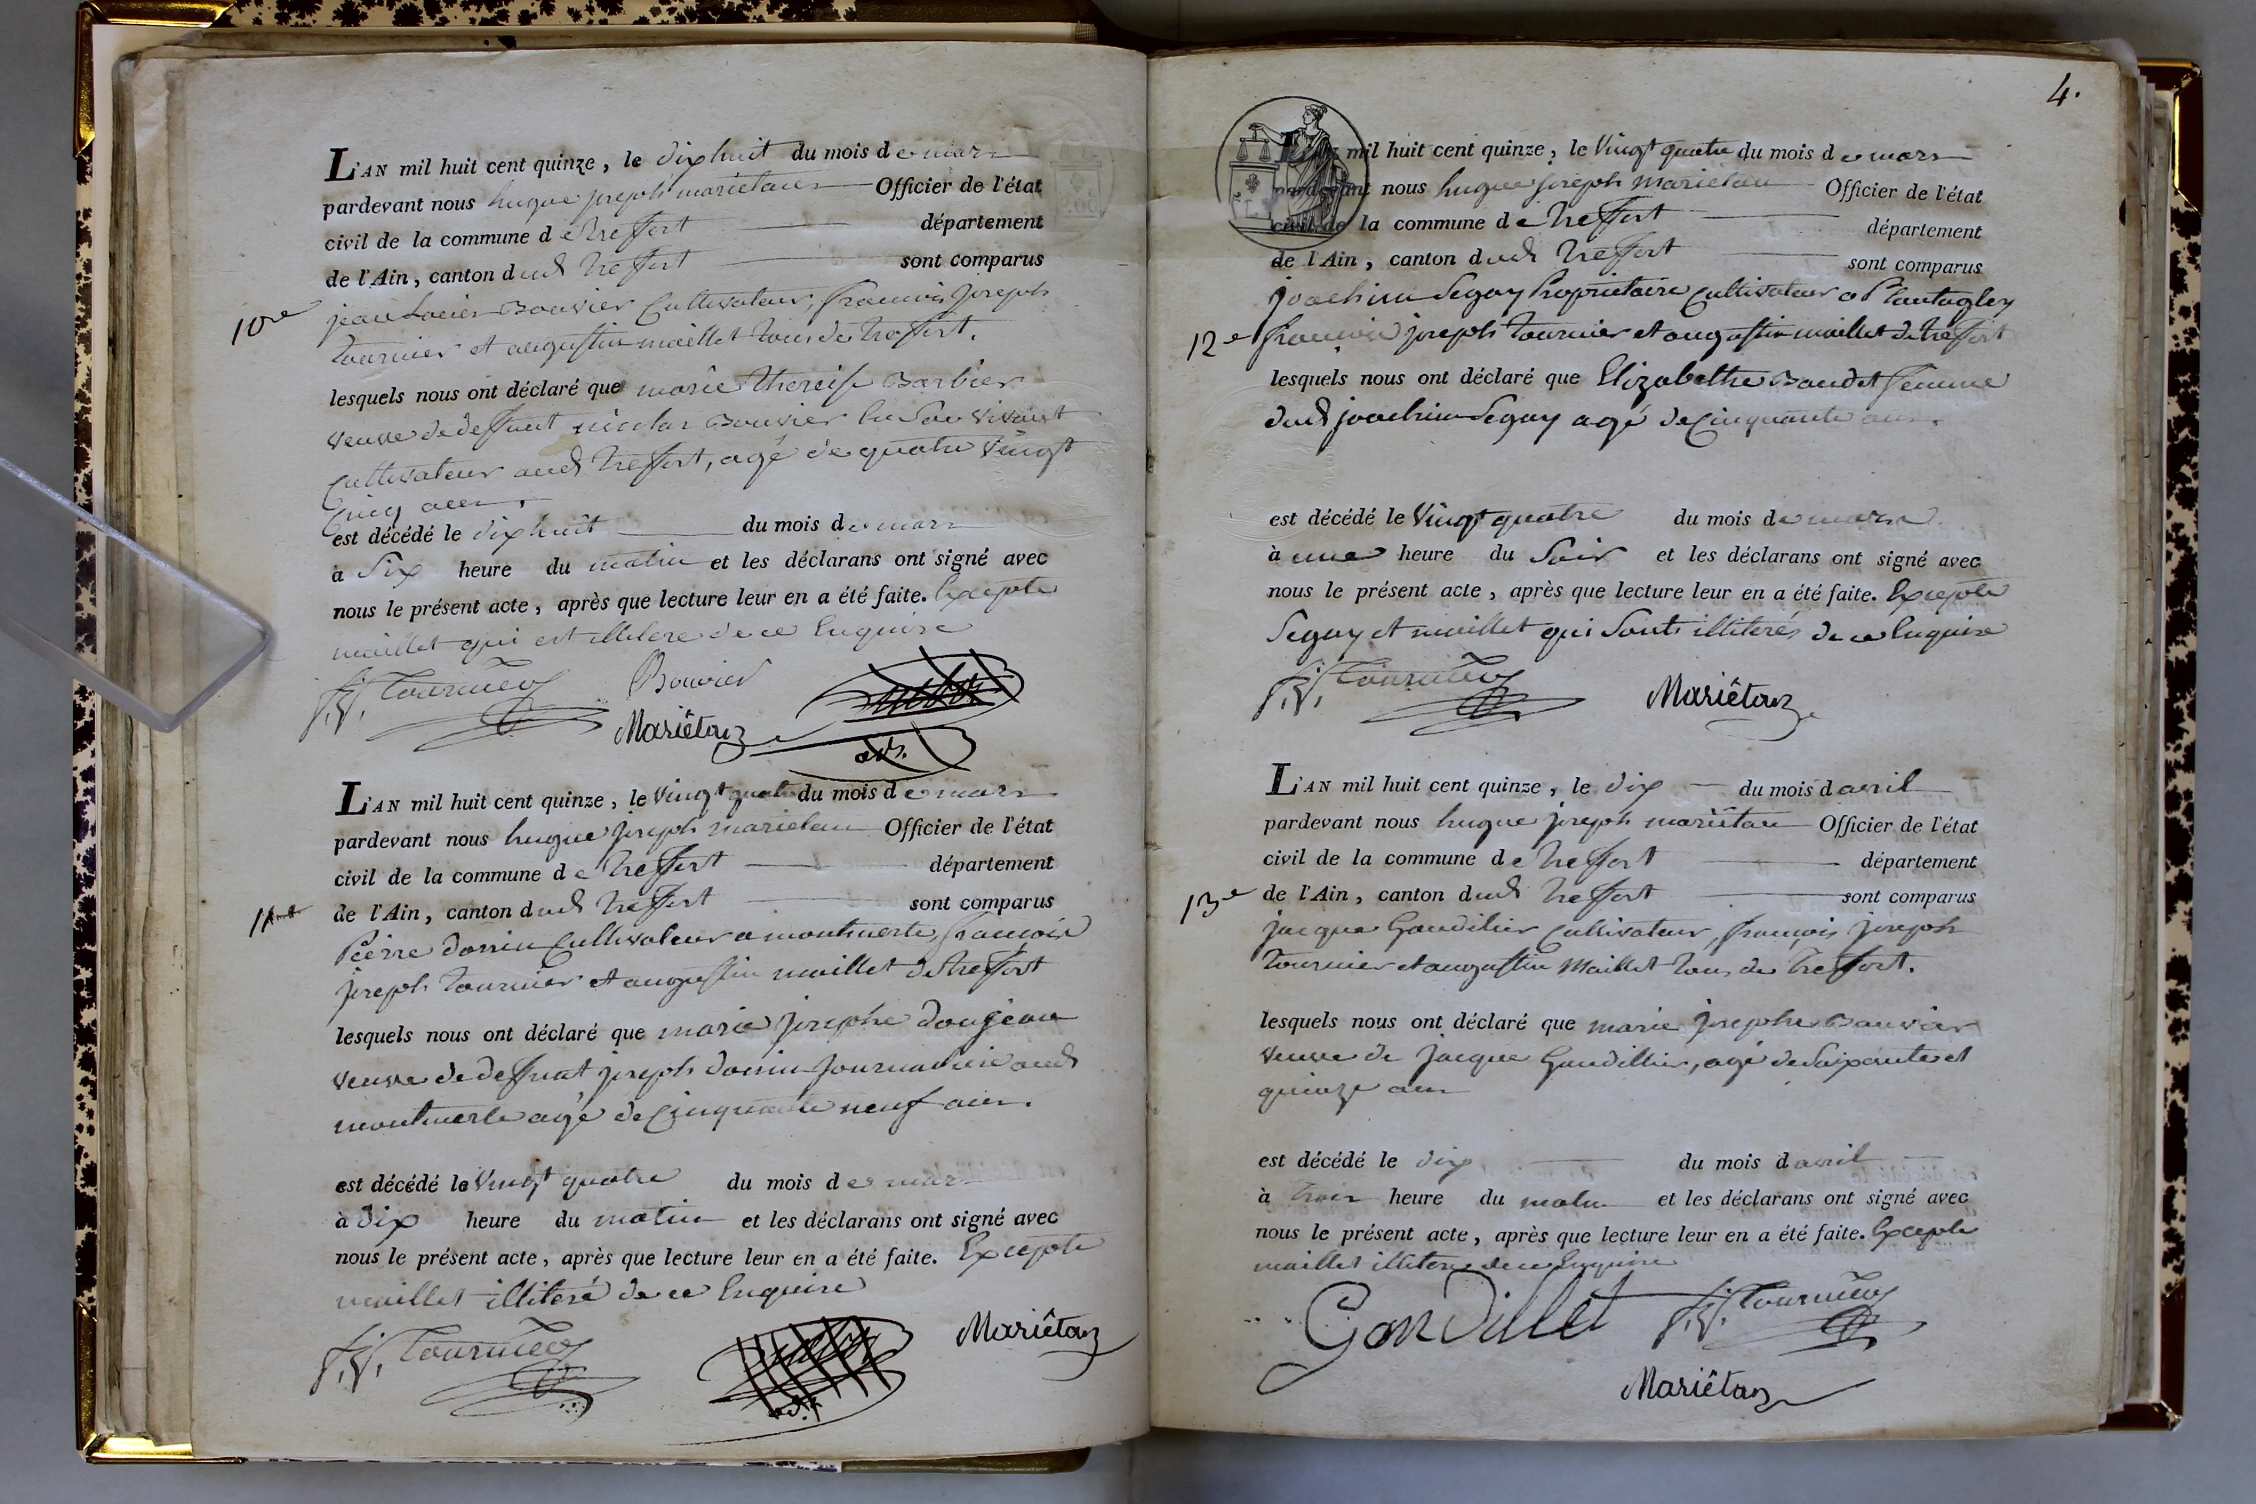 L'AN mil huit cent quinze, le dixhuit du mois de mars
pardevant nous hugue joseph mariétan Officier de l'état
civil de la commune de treffort département
de l'Ain, canton dud treffort sont comparus
10e
jean Bouvier Cultivateur, francois joseph
tournier et augustin maillet tous de treffort.
lesquels nous ont déclaré que marie thereise Barbier
veuve de deffunt nicolas Bouvier en son vivant
cultivateur aud treffort, agé de quatre vingt
Cinq ans.
est décédé le dixhuit du mois de mars
à six heure du matin et les déclarans ont signé avec
nous le présent acte, après que lecture leur en a été faite. Excepté
maillet qui est illiteré de ce Enquire
f. j. Tournier Bouvier
Mariétan
L'AN mil huit cent quinze, le vingt quatre du mois de mars
pardevant nous hugue joseph marietan Officier de l'état
civil de la commune de treffort département
11
de l'Ain, canton dud treffort sont comparus
Pierre donin Cultivateur a montmerle, francois
joseph tournier et augustin maillet de treffort
lesquels nous ont déclaré que marie josephe doujeau
veuve de deffunt joseph donin journalier aud
montmerle agé de Cinquante neuf ans.
est décédé le vingt quatre du mois de mars
à dix heure du matin et les déclarans ont signé avec
nous le présent acte, après que lecture leur en a été faite. Excepté
maillet illiteré de ce Enquire
f. j. Tournier
Mariétan
4.
mil huit cent quinze, le vingt quatre du mois de mars
pardevant nous hugue joseph marietan Officier de l'état
civil de la commune de treffort département
de l'Ain, canton dud treffort sont comparus
joachim Segay Proprietaire Cultivateur a Plantaglay
12e francois joseph tournier et augustin maillet de treffort
lesquels nous ont déclaré que Elizabethe Baudet femme
dud joachim Segay agé de Cinquante ans.
est décédé le vingt quatre du mois de mars
à une heure du soir et les déclarans ont signé avec
nous le présent acte, après que lecture leur en a été faite. Excepté
Segay et maillet qui sont illiterés de ce Enquire
f. j. Tournier Mariétan
L'AN mil huit cent quinze, le dix du mois d avril
pardevant nous hugue joseph mariétan Officier de l'état
civil de la commune de treffort département
13e de l'Ain, canton dud treffort sont comparus
jacque Gaudilier Cultivateur, françois joseph
tournier et augustin Maillet tous de treffort.
lesquels nous ont déclaré que marie josephe Bouvier
veuve de jacque Gaudillier, agé de soixante et
quinze ans
est décédé le dix du mois d avril
à trois heure du matin et les déclarans ont signé avec
nous le présent acte, après que lecture leur en a été faite. Excepté
maillet illiteré de ce Enquire
GauDillet f. j. Tournier
Mariétan